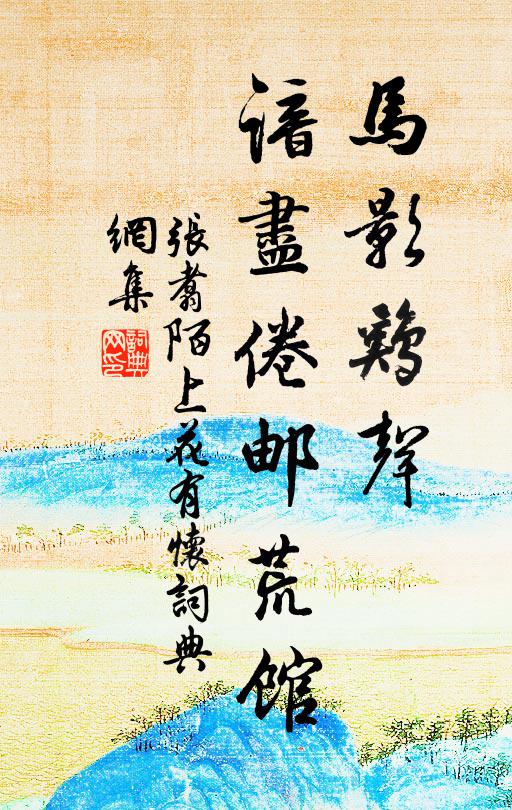 馬影鷄聲
諳盡倦邮荒館
張翥陌上花有懷詞典
網集
詞典網印